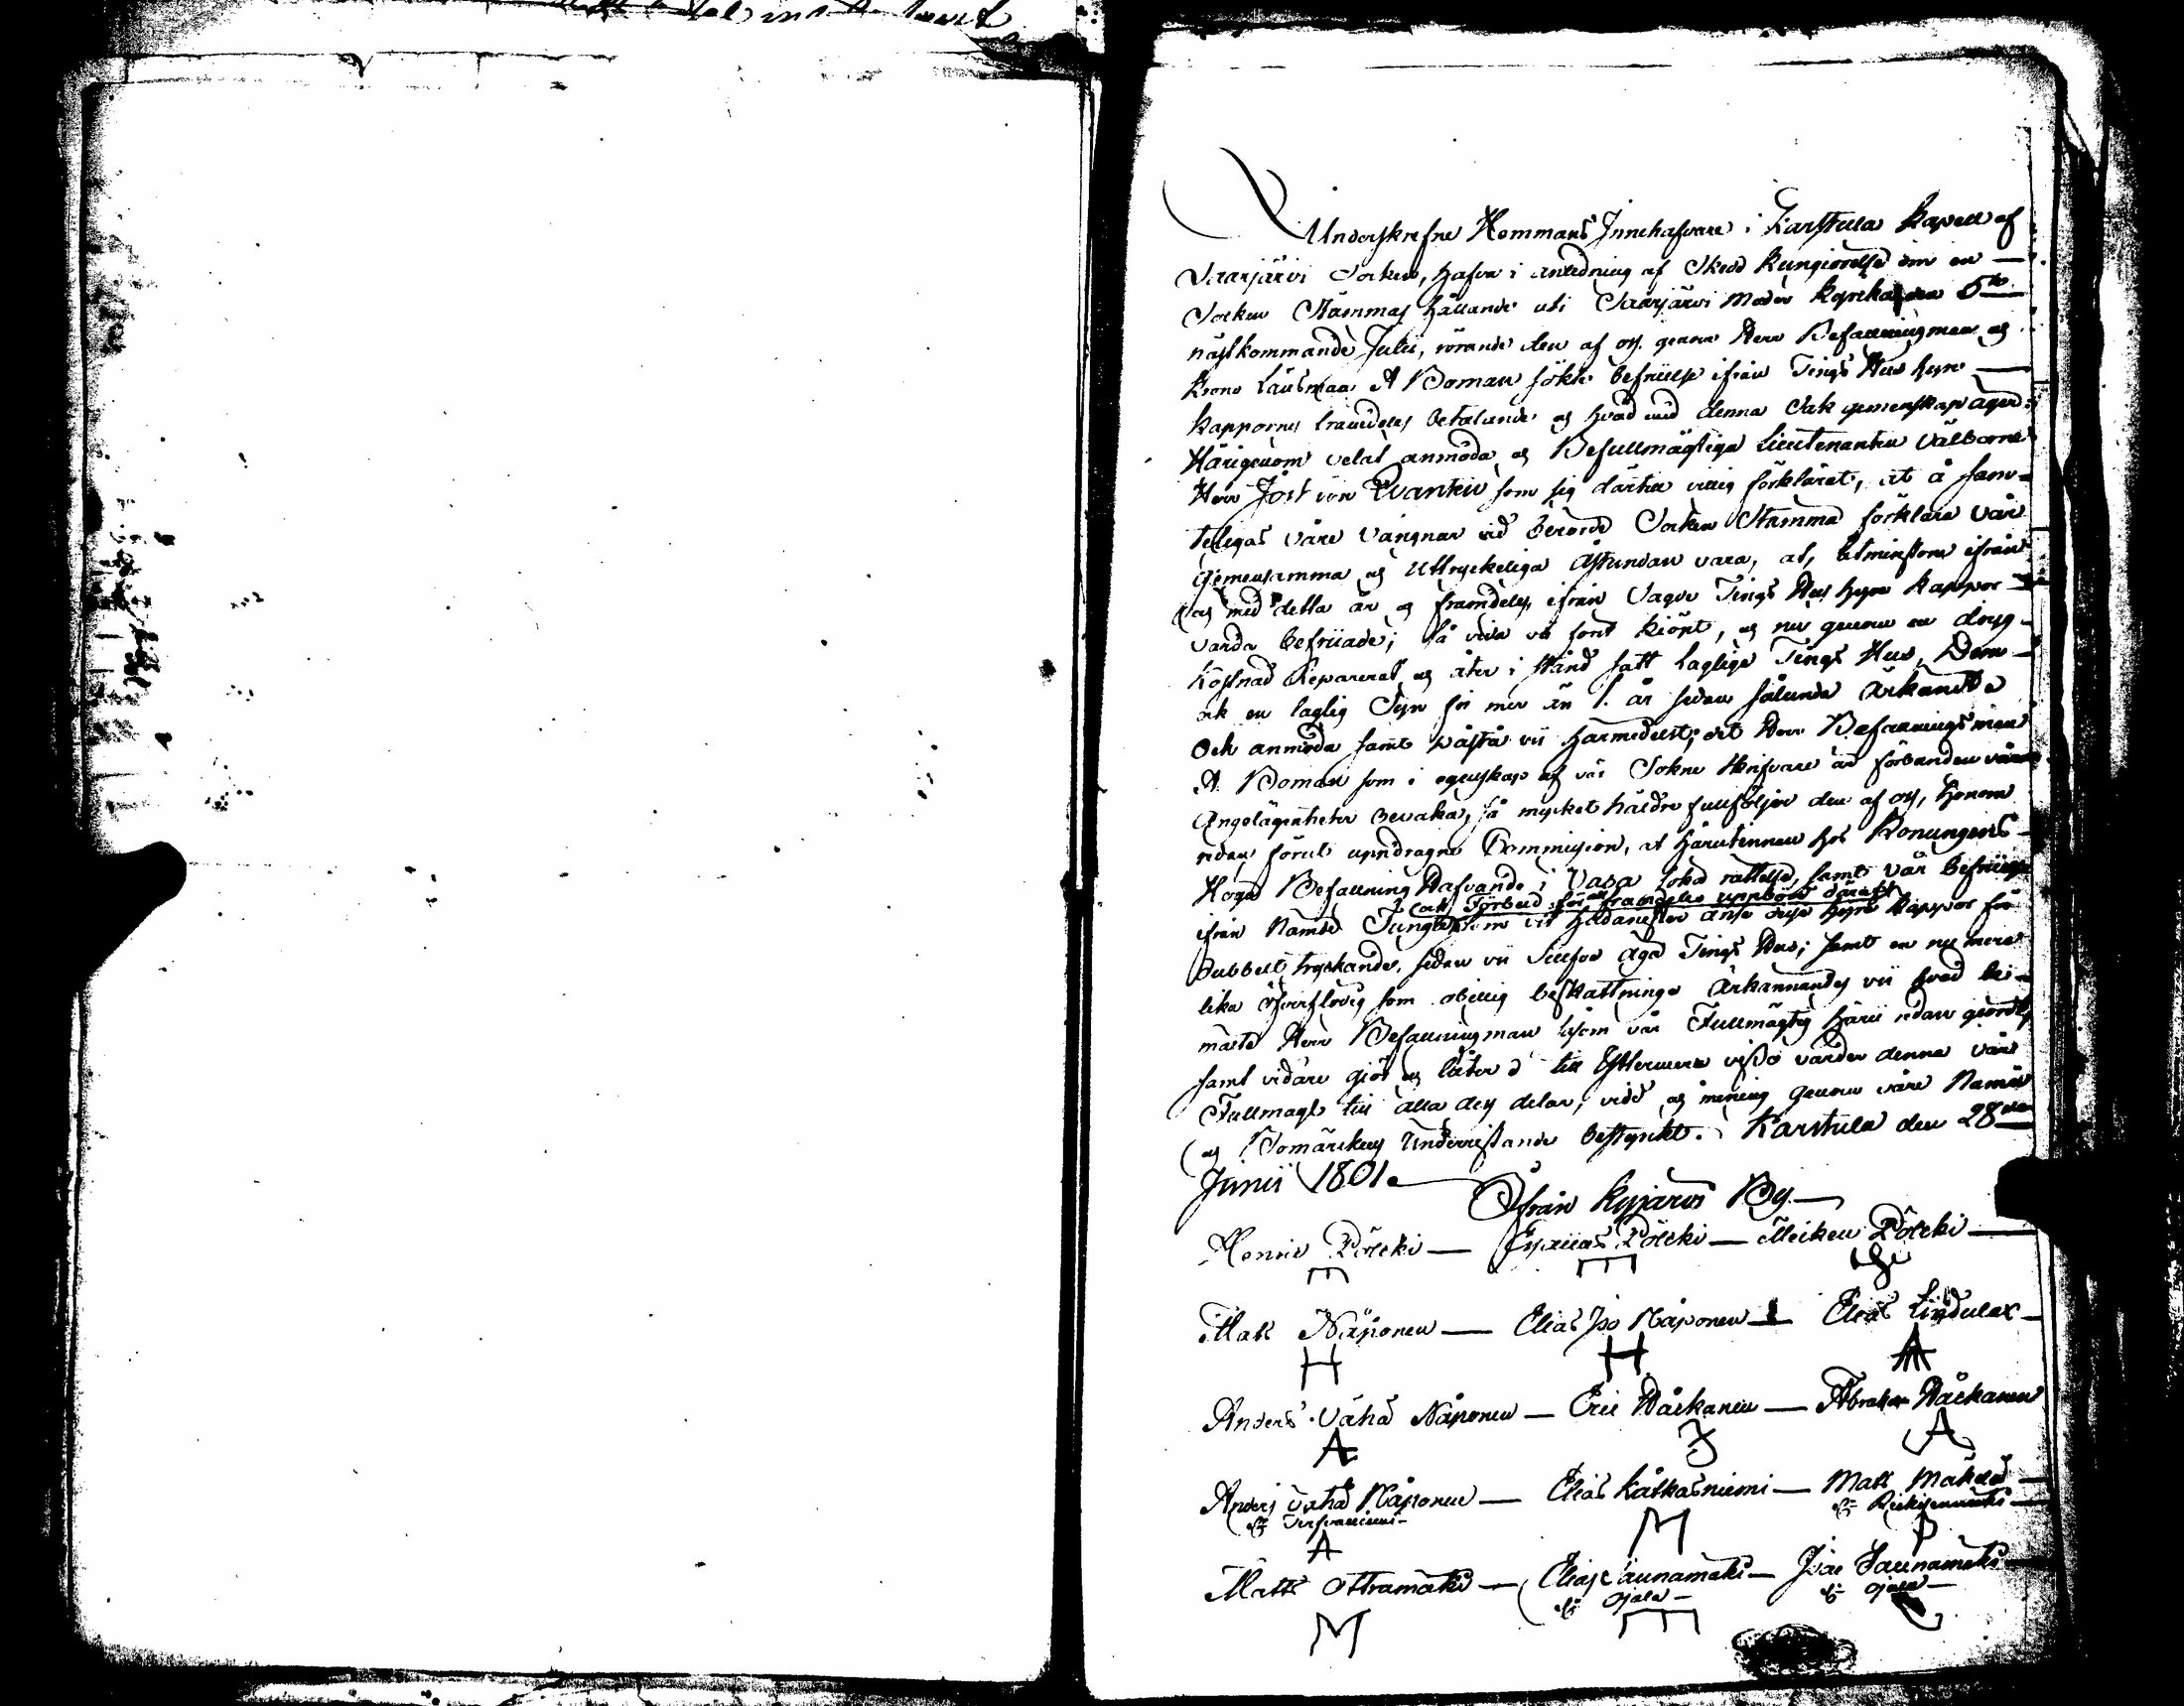 Underskrefne Hemmans Innehafvare i Karstula Kapell af
Saarjärvi Socken, hafva i anledning af Skedd Kungiörelse om en
Socken Stämmas hållande uti Saarjärvi Moder Kyrka den 5te
nästkommande Julii, rörande den af oss genom Herr Befallningsman og
Krono Länsman A Boman sökte befrielse ifrån Tings Hus hyre
kappornes framdeles betalande og hvad med denna Sak gemenskap äger
Härigenom velat anmoda og Befullmägtiga Lieutenanten Välborne
Herr Jost von Qvanten som sig därtill villig förklarat, at å sam-
teligas våre vägnar vid berörde Socken Stämma förklara vår
gemensamma og uttryckeliga åstundan vara, at, åtminstone ifrån
og med detta år og framdeles, ifrån Sagde Tings Hus hyre kappor
varda befriiade; så vida vi först kiöpt, og nu genom en dryg
kostnad Reparerat og åter i stånd satt laglige Tings Hus, Dem
ock en laglig Syn för mer än 1. år sedan sålunda ärkändt
Och anmoda samt påstå vii härmedelst, at Herr Befallningsman
A Boman som i egenskap af vår Sokne Skrifvare är förbunden våra
Angelägenheter bevaka, så mycket häldre fullföljer den af oss, honom
redan förut updragne Commission, at härutinnan hos Konungens
Höga Befallning Hafvande i Vasa söka rättelse, samt vår befrielse
och Förbud för all framdeles uppbörd däraf
ifrån Nämde Tunga som vii hädanefter anse desse hyre kappor för
Dubbelt tryckande, sedan vii Sielfve äga Tings Hus; samt en nu mera
lika öfverflödig som obillig beskattning. Ärkännandes vii hvad be-
mälte Herr Befallningsman såsom vår Fullmägtig härii redan giordt
samt vidare giör og låter. Till yttermera visso varder denna vår
Fullmagt till alla des delar, vidd og mening genom våre Namn
og Bomärkens Underrittande bestyrkt. Karstula den 28de
Junii 1801.
Ifrån Kyjärvi By.
Henric Pölcki — Esaiias Pölcki — Meiken Pölcki
Matts Näponen — Elias Iso Näponen — Elias Lindulax
Anders Vähä Näponen — Eric Håckanen — Abraham Håckanen
Anders Vähä Näponen — Elias Kätkäsniemi — Matts Mäkelä
Matts Ottramäki — Elias Saunamäki — Isac Saunamäki
Ojala — Ojala